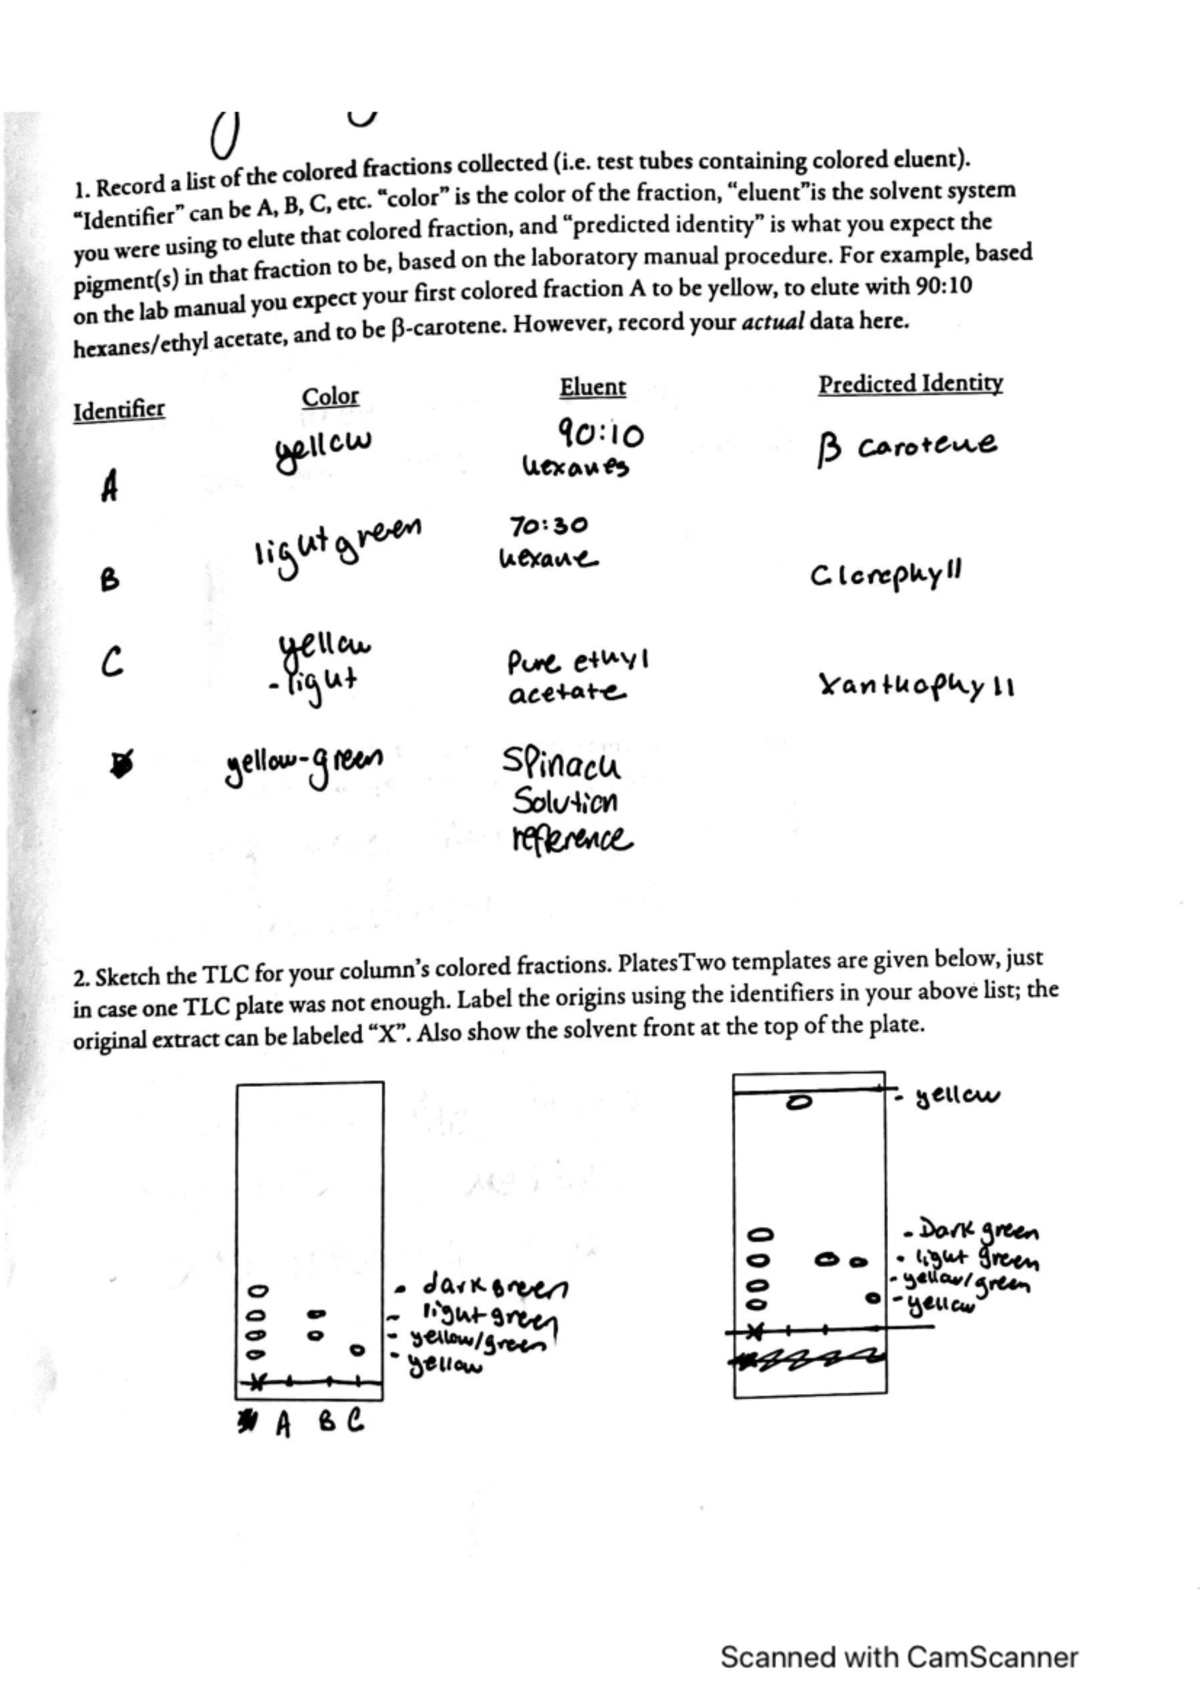 1. Record a list of the colored fractions collected (i.e. test tubes containing colored eluent).
“Identifier” can be A, B, C, etc. “color” is the color of the fraction, “eluent”is the solvent system
you were using to elute that colored fraction, and “predicted identity” is what you expect the
pigment(s) in that fraction to be, based on the laboratory manual procedure. For example, based
on the lab manual you expect your first colored fraction A to be yellow, to elute with 90:10
hexanes/ethyl acetate, and to be β-carotene. However, record your actual data here.
Identifier Color Eluent Predicted Identity
A yellow 90:10 β carotene
hexanes
B light green 70:30 Clorophyll
hexane
C yellow Pure ethyl Xanthophyll
- light acetate
yellow-green Spinach
Solution
reference
2. Sketch the TLC for your column’s colored fractions. PlatesTwo templates are given below, just
in case one TLC plate was not enough. Label the origins using the identifiers in your above list; the
original extract can be labeled “X”. Also show the solvent front at the top of the plate.
- yellow
- Dark green
- light green
- yellow/green
- yellow
- dark green
- light green
- yellow/green
- yellow
X
X
A B C
Scanned with CamScanner